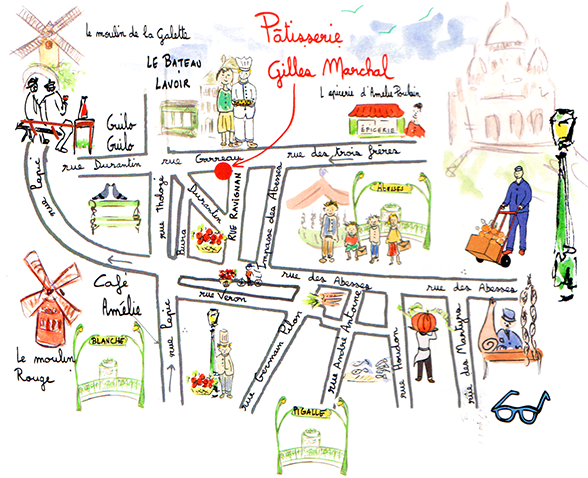 Le moulin de la Galette
LE BATEAU
LAVOIR
Pâtisserie
Gilles Marchal
L'epicerie d'Amelie Poulain
EPICERIE
Guilo
Guilo
rue Durantin
rue Garreau
rue des trois frères
rue Lepic
rue Tholozé
Burq
Durantin
RUE RAVIGNAN
Impasse des Abesses
ABESSES
rue des Abesses
rue des Abesses
rue Véron
Café
Amélie
BLANCHE
Le moulin
Rouge
rue Lepic
rue Germain Pilon
rue André Antoine
rue Houdon
rue des Martyrs
PIGALLE